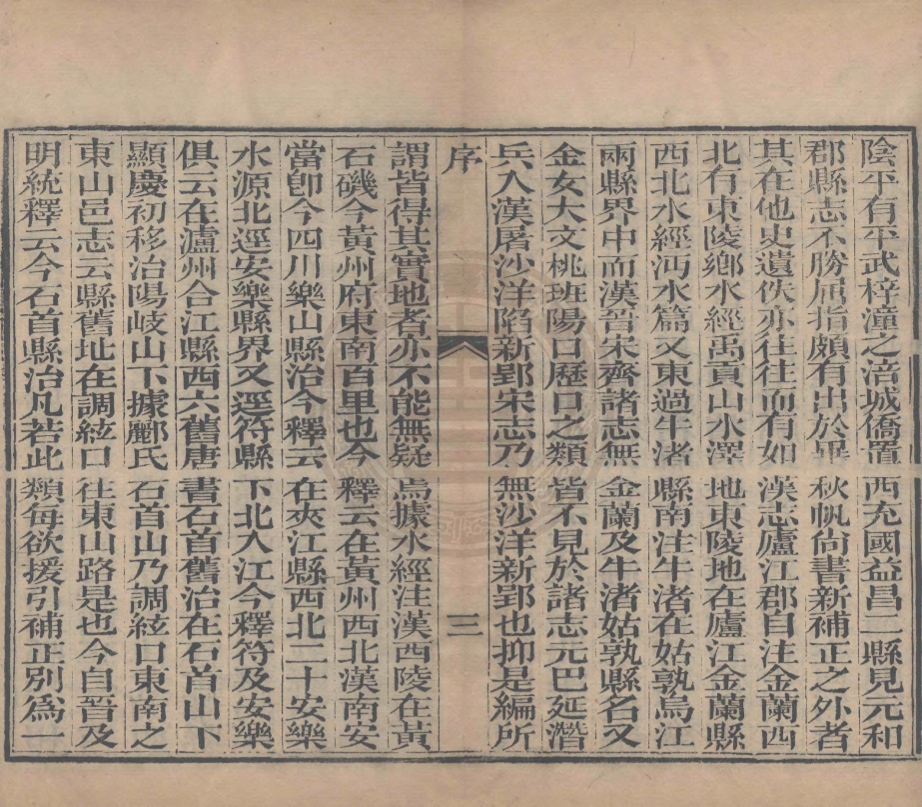 陰平有平武梓潼之涪城僑置西充國益昌二縣見元和
郡縣志不勝屈指頗有出於畢秋帆尙書新補正之外者
其在他史遺佚亦往往而有如漢志廬江郡自注金蘭西
北有東陵鄉水經禹貢山水澤地東陵地在廬江金蘭縣
西北水經沔水篇又東過牛渚縣南注牛渚在姑孰烏江
兩縣界中而漢晉宋齊諸志無金蘭及牛渚姑孰縣名又
金女大文桃班陽口歷口之類皆不見於諸志元巴延潛
兵入漢屠沙洋陷新郢宋志乃無沙洋新郢也抑是編所
序 三
謂皆得其實地者亦不能無疑焉據水經注漢西陵在黃
石磯今黃州府東南百里也今釋云在黃州西北漢南安
當卽今四川樂山縣治今釋云在夾江縣西北二十安樂
水源北逕安樂縣界又逕符縣下北入江今釋符及安樂
俱云在瀘州合江縣西六舊唐書石首舊治在石首山下
顯慶初移治陽岐山下據酈氏石首山乃調絃口東南之
東山邑志云縣舊址在調絃口往東山路是也今自晉及
明統釋云今石首縣治凡若此類每欲援引補正別爲一